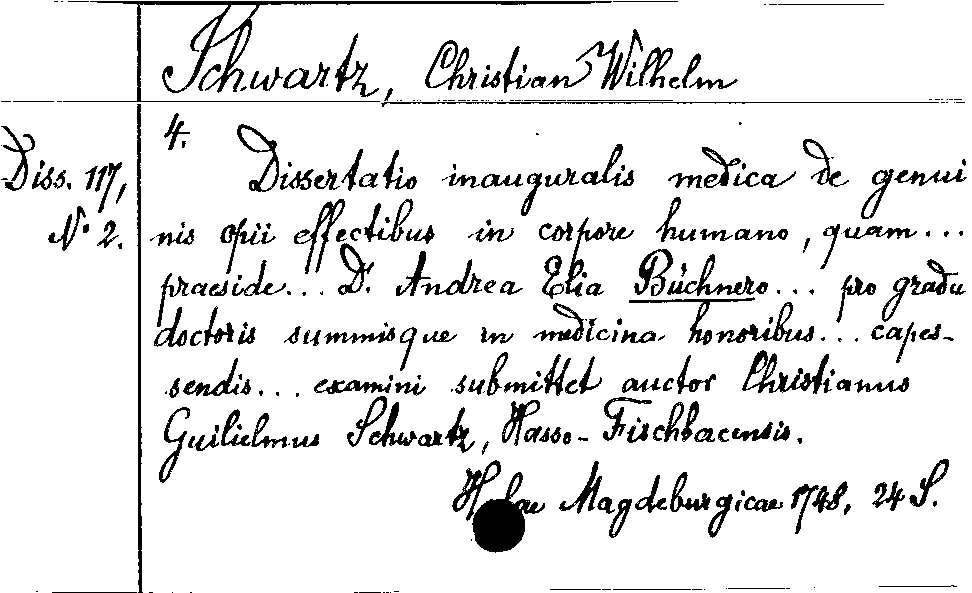 Schwartz, Christian Wilhelm
4.
Diss. 117,
No 2.
Dissertatio inauguralis medica de genui
nis opii effectibus in corpore humano, quam...
praeside... Dr. Andrea Elia Büchnero... pro gradu
doctoris summisque in medicina honoribus... capes-
sendis... examini submittet auctor Christianus
Guilielmus Schwartz, Hasso-Fischbacensis.
Magdeburgicae 1748, 24 S.